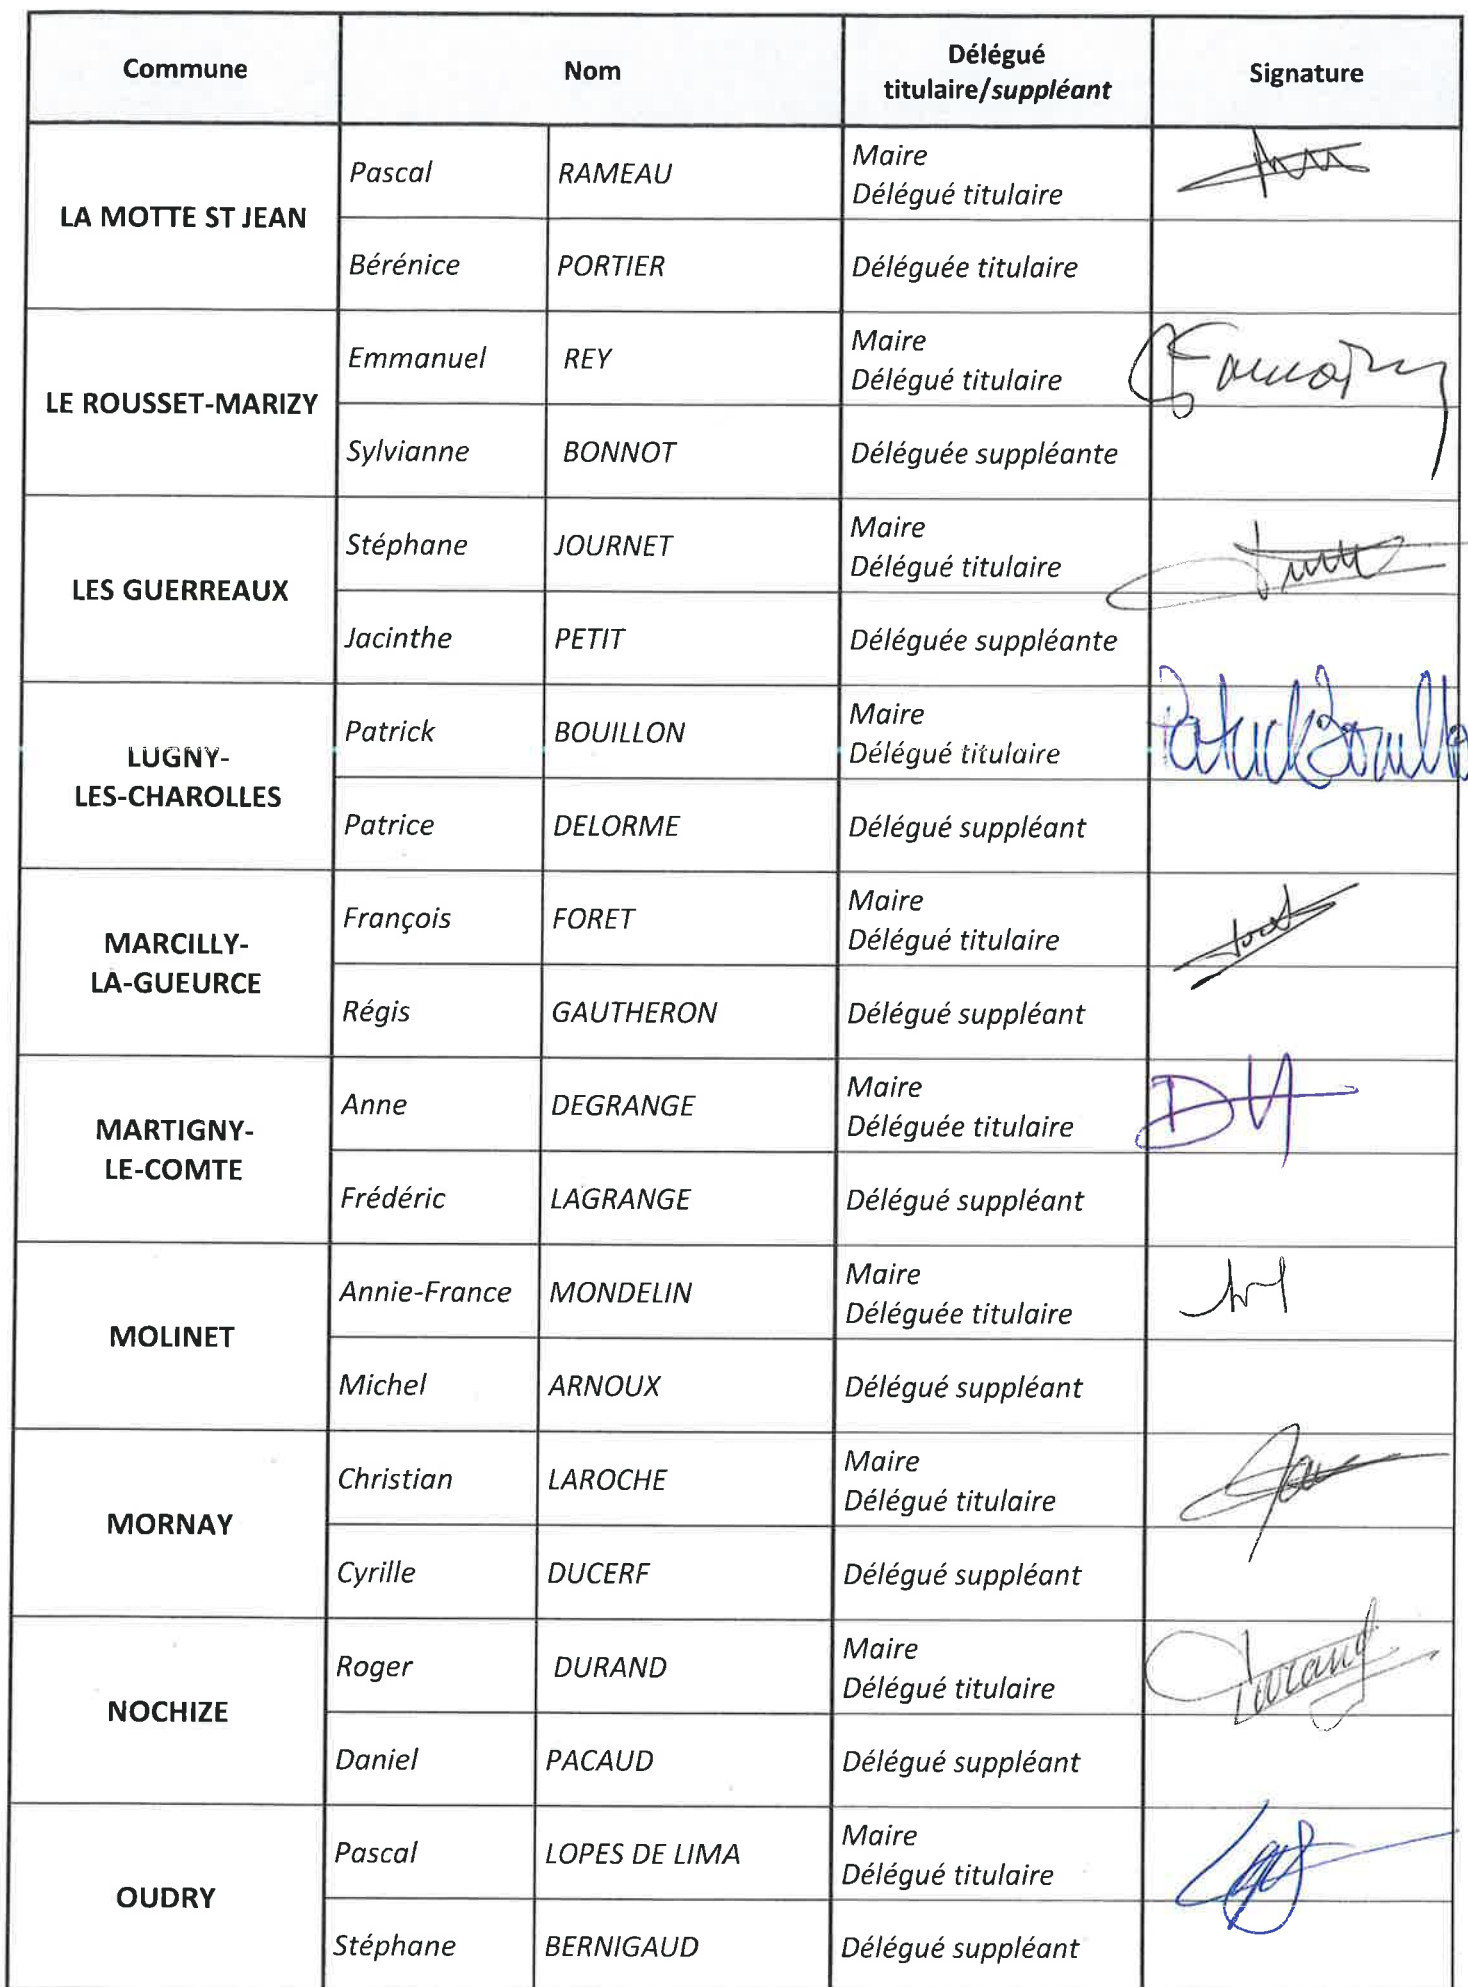 Commune Nom Délégué titulaire/suppléant Signature
LA MOTTE ST JEAN
Pascal RAMEAU Maire Délégué titulaire
Bérénice PORTIER Déléguée titulaire
LE ROUSSET-MARIZY
Emmanuel REY Maire Délégué titulaire
Sylvianne BONNOT Déléguée suppléante
LES GUERREAUX
Stéphane JOURNET Maire Délégué titulaire
Jacinthe PETIT Déléguée suppléante
LUGNY-
LES-CHAROLLES
Patrick BOUILLON Maire Délégué titulaire Patrick Bouillon
Patrice DELORME Délégué suppléant
MARCILLY-
LA-GUEURCE
François FORET Maire Délégué titulaire
Régis GAUTHERON Délégué suppléant
MARTIGNY-
LE-COMTE
Anne DEGRANGE Maire Déléguée titulaire
Frédéric LAGRANGE Délégué suppléant
MOLINET
Annie-France MONDELIN Maire Déléguée titulaire
Michel ARNOUX Délégué suppléant
MORNAY
Christian LAROCHE Maire Délégué titulaire
Cyrille DUCERF Délégué suppléant
NOCHIZE
Roger DURAND Maire Délégué titulaire Durand
Daniel PACAUD Délégué suppléant
OUDRY
Pascal LOPES DE LIMA Maire Délégué titulaire
Stéphane BERNIGAUD Délégué suppléant